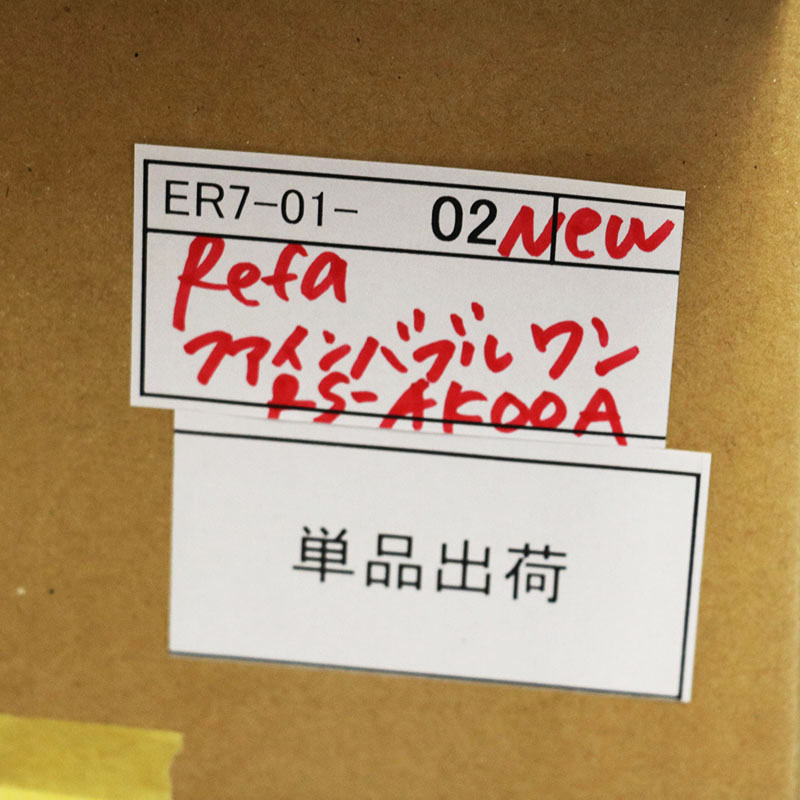 ER7-01- 02 New
Refa
ファインバブル ワン
RS-AK00A
単品出荷